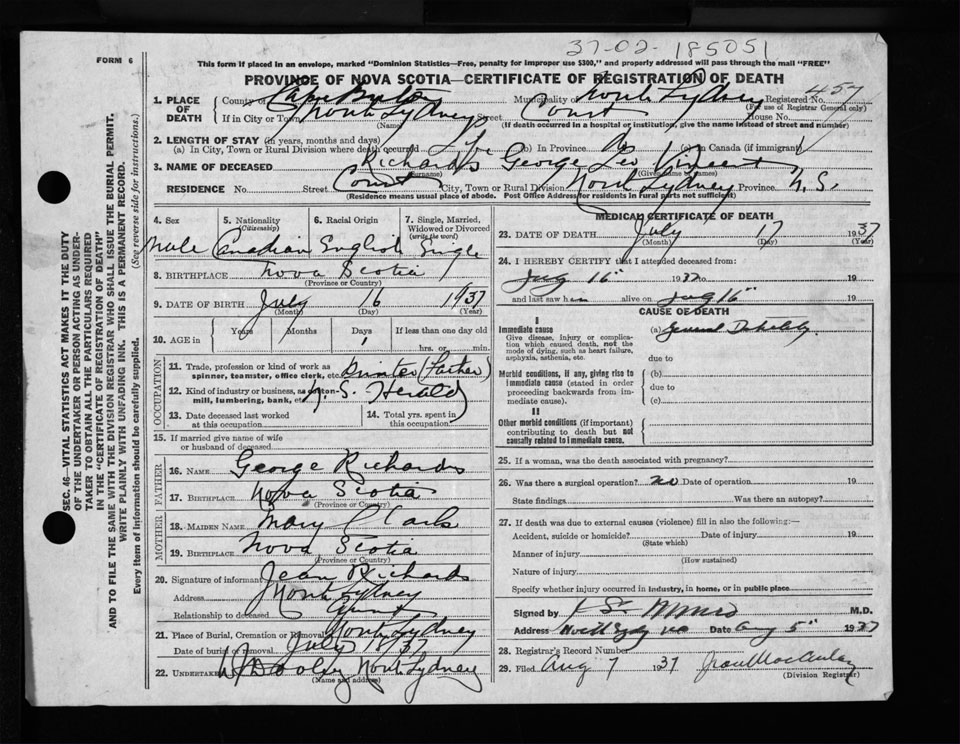 37-02-185051
FORM 6
This form if placed in an envelope, marked "Dominion Statistics—Free, penalty for improper use $300," and properly addressed will pass through the mail "FREE"
PROVINCE OF NOVA SCOTIA—CERTIFICATE OF REGISTRATION OF DEATH
1. PLACE OF DEATH County of Cape Breton Municipality of North Sydney Registered No. 457
(For use of Registrar General only)
If in City or Town North Sydney Street Court House No.
(Name) (If death occurred in a hospital or institution, give the name instead of street and number)
2. LENGTH OF STAY (in years, months and days)
(a) In City, Town or Rural Division where death occurred (b) In Province (c) in Canada (if immigrant)
3. NAME OF DECEASED Richards George Leo Vincent
(Surname) (Given name or names)
RESIDENCE No. Street Court City, Town or Rural Division North Sydney Province N.S.
(Residence means usual place of abode. Post Office Address for residents in rural parts not sufficient)
4. Sex 5. Nationality (Citizenship) 6. Racial Origin 7. Single, Married, Widowed or Divorced (write the word)
Male Canadian English Single
8. BIRTHPLACE Nova Scotia
(Province or Country)
9. DATE OF BIRTH July 16 1937
(Month) (Day) (Year)
10. AGE in Years Months Days If less than one day old
1 hrs. or min.
OCCUPATION
11. Trade, profession or kind of work as spinner, teamster, office clerk, etc. Printer (Father)
12. Kind of industry or business, as cotton-mill, lumbering, bank, etc. N.S. Herald
13. Date deceased last worked at this occupation 14. Total yrs. spent in this occupation
15. If married give name of wife or husband of deceased
FATHER
16. NAME George Richards
17. BIRTHPLACE Nova Scotia
(Province or Country)
MOTHER
18. MAIDEN NAME Mary
19. BIRTHPLACE Nova Scotia
(Province or Country)
20. Signature of informant Jean Richards
Address North Sydney
Relationship to deceased Aunt
21. Place of Burial, Cremation or Removal North Sydney
Date of burial or removal July 18/37
22. Undertaker Dooley North Sydney
(Name and address)
MEDICAL CERTIFICATE OF DEATH
23. DATE OF DEATH July 17 1937
(Month) (Day) (Year)
24. I HEREBY CERTIFY that I attended deceased from:
16" 19 to 19
and last saw h alive on 16" 19
CAUSE OF DEATH
I
Immediate cause (a) General Debility
Give disease, injury or complication which caused death, not the mode of dying, such as heart failure, asphyxia, asthenia, etc.
due to
Morbid conditions, if any, giving rise to immediate cause (stated in order proceeding backwards from immediate cause). (b)
due to
(c)
II
Other morbid conditions (if important) contributing to death but not causally related to immediate cause.
25. If a woman, was the death associated with pregnancy?
26. Was there a surgical operation? no Date of operation 19
State findings Was there an autopsy?
27. If death was due to external causes (violence) fill in also the following:—
Accident, suicide or homicide? Date of injury 19
(State which)
Manner of injury
(How sustained)
Nature of injury
Specify whether injury occurred in industry, in home, or in public place
Signed by M.D.
Address Date Aug 5" 1937
28. Registrar's Record Number
29. Filed Aug 7 1937 Jean MacAulay
(Division Registrar)
SEC. 46—VITAL STATISTICS ACT MAKES IT THE DUTY
OF THE UNDERTAKER OR PERSON ACTING AS UNDER-
TAKER TO OBTAIN ALL THE PARTICULARS REQUIRED
IN THE "CERTIFICATE OF REGISTRATION OF DEATH"
AND TO FILE THE SAME WITH THE DIVISION REGISTRAR WHO SHALL ISSUE THE BURIAL PERMIT.
WRITE PLAINLY WITH UNFADING INK. THIS IS A PERMANENT RECORD.
Every item of Information should be carefully supplied. (See reverse side for instructions.)